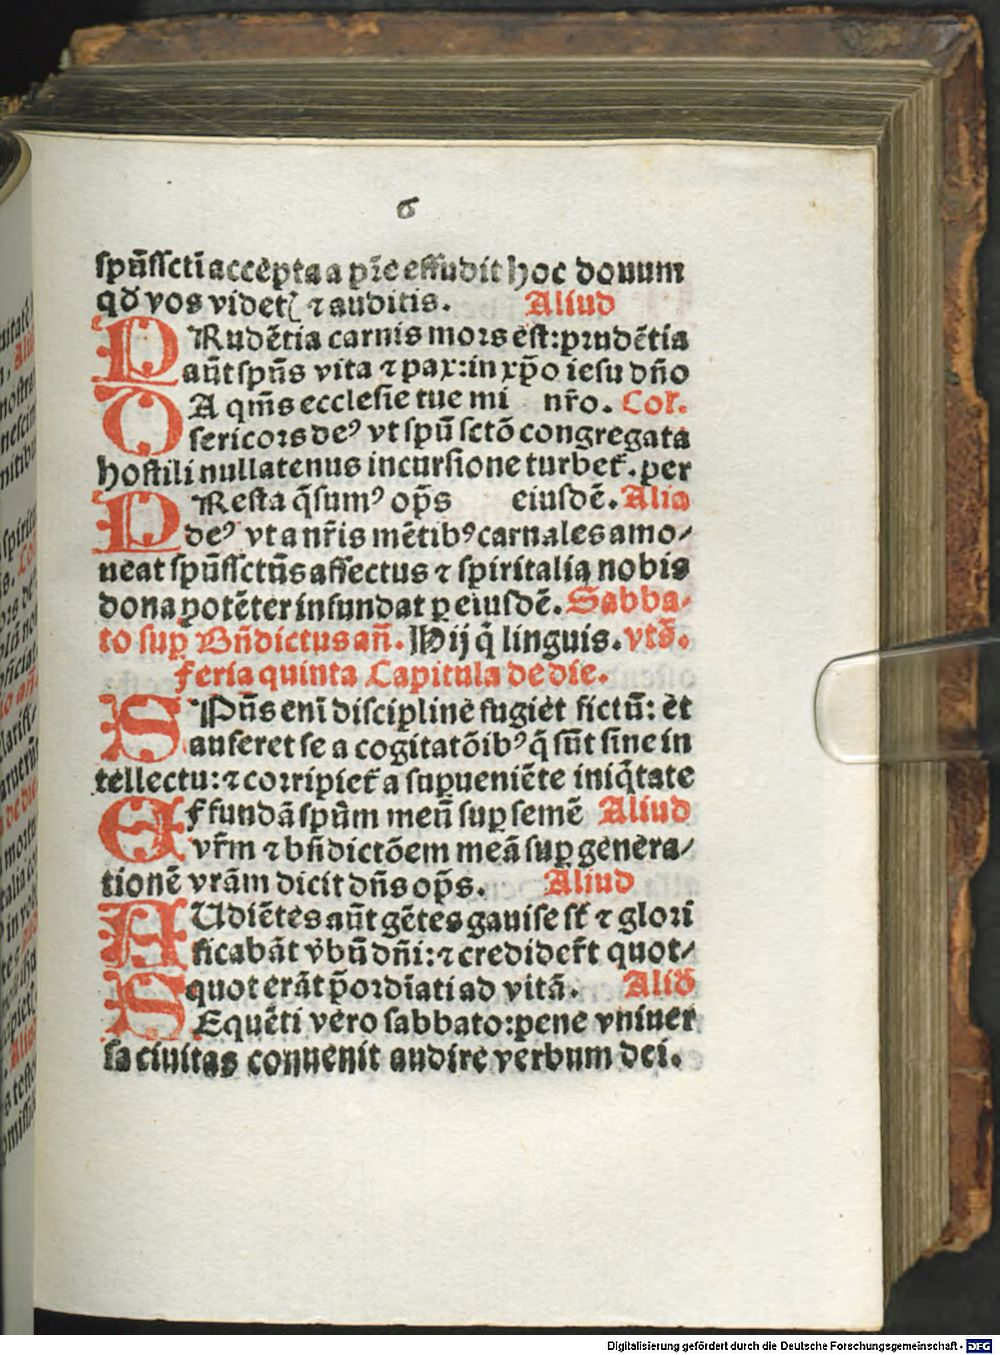 6
spūſſctī accepta a pr̄e effudit hoc donum
qd̄ vos videt( ⁊ auditis. Aliud
PRudētia carnis mors est: prudētia
aūt spūs vita ⁊ pax: in xp̄o iesu dño
DA qm̄s ecclesie tue mi nr̄o. Col.
sericors deꝰ vt spū sctō congregata
hostili nullatenus incursione turbet̄. per
PResta q̄sumꝰ op̄s eiusdē. Alia
deꝰ vt a nr̄is mētibꝰ carnales amo⸗
ueat spūſſctūs affectus ⁊ spiritalia nobis
dona potēter infundat ꝑ eiusdē. Sabba⸗
to suꝑ Bn̄dictus an̄. Hij q̄ linguis. vts̄.
feria quinta Capitula de die.
SPūs enī discipline fugiet fictū: et
auferet se a cogitatōibꝰ q̄ sūt sine in
tellectu: ⁊ corripiet̄ a suꝑueniēte iniq̄tate
Effundā spūm meū suꝑ semē Aliud
vr̄m ⁊ bn̄dictōem meā suꝑ genera⸗
tionē vrām dicit dn̄s op̄s. Aliud
AUdiētes aūt gētes gauise st̄ ⁊ glori
ficabāt v̄bū dn̄i: ⁊ crediderūt quot⸗
quot erāt p̄ordīati ad vitā. Aliđ
SEquēti vero sabbato: pene vniuer
sa ciuitas conuenit audire verbum dei.
Digitalisierung gefördert durch die Deutsche Forschungsgemeinschaft - DFG